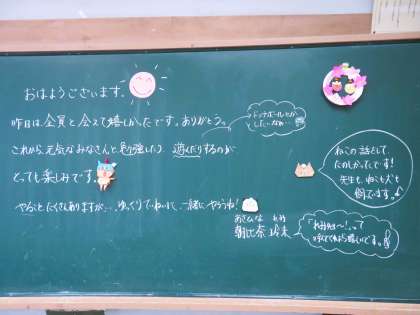 おはようございます。
昨日は、全員と会えて嬉しかったです。ありがとう。
ドッチボールとか
したいなぁ…
これから、元気なみなさんと勉強したり、遊んだりするのが
とっても楽しみです。
ねこの話として、
たのしかったです!
先生も、ねこも犬も
飼ています。
やること、たくさんありますが…、ゆっくりていねいに、一緒にやろうね!
あさひな
朝比奈
って